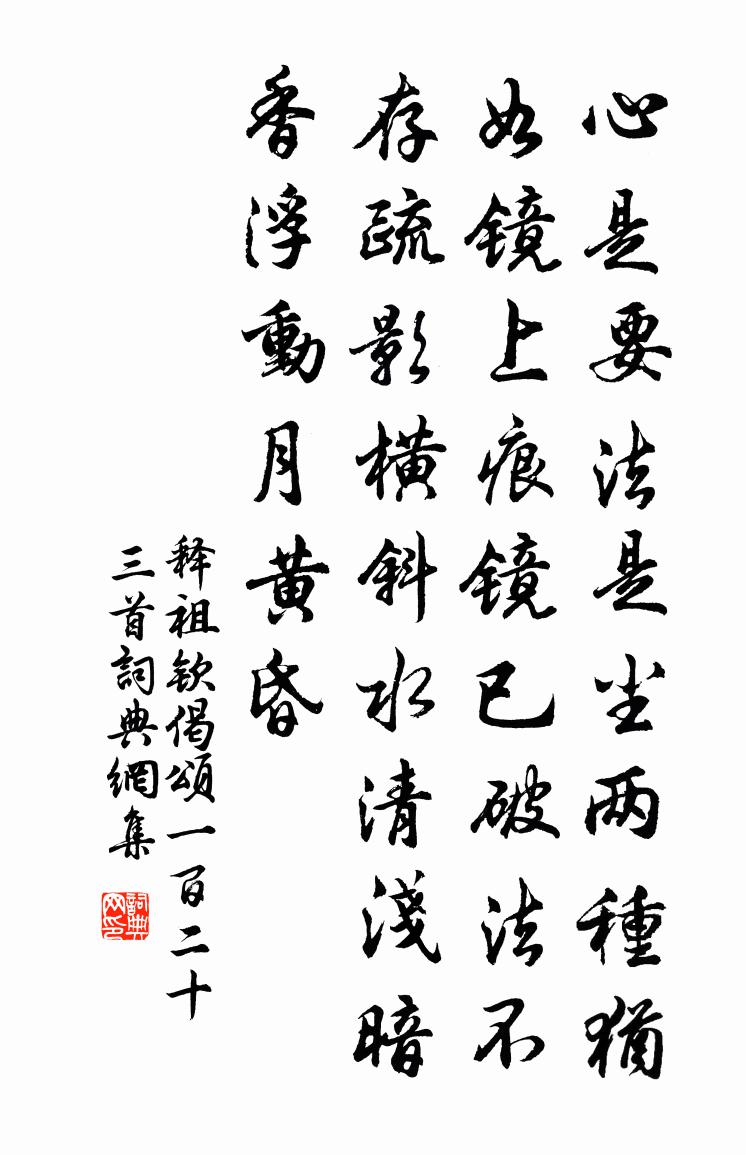 心是要法是尘两種猶
如镜上痕镜已破法不
存疏影横斜水清淺暗
香浮動月黄昏
释祖钦偈頌一百二十
三首詞典網集
詞典
网印